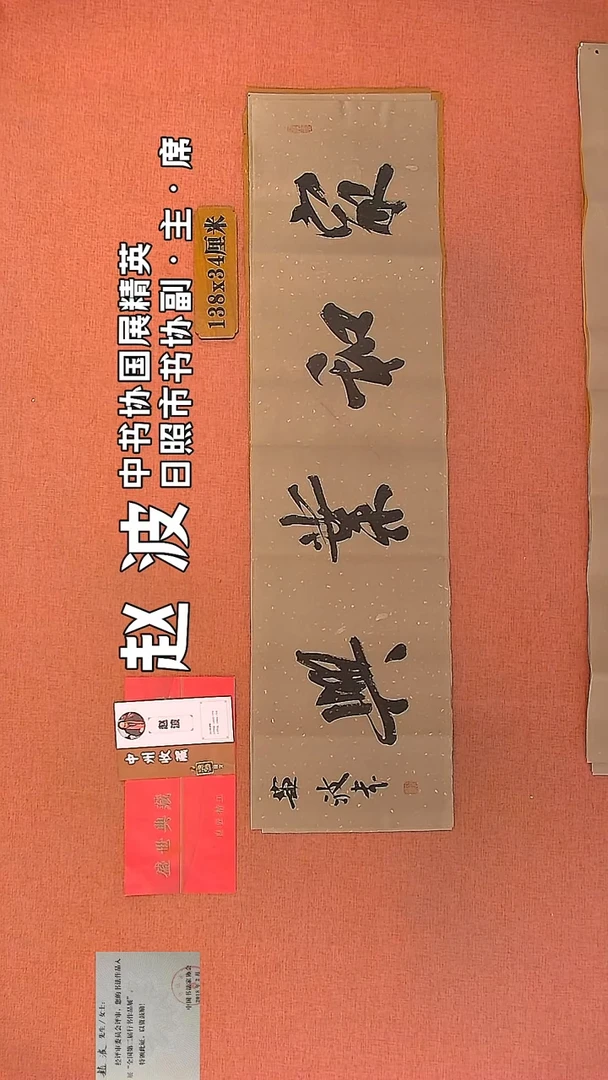 中书协国展精英
日照市书协副·主·席
赵波
138x34厘米
家和業興
赵波书
赵波
中州收藏
盛世典藏
赵波 先生/女士：
经评审委员会评审，您的书法作品入
展“全国第二届行书作品展”，
特别此证，以资鼓励！
中国书法家协会